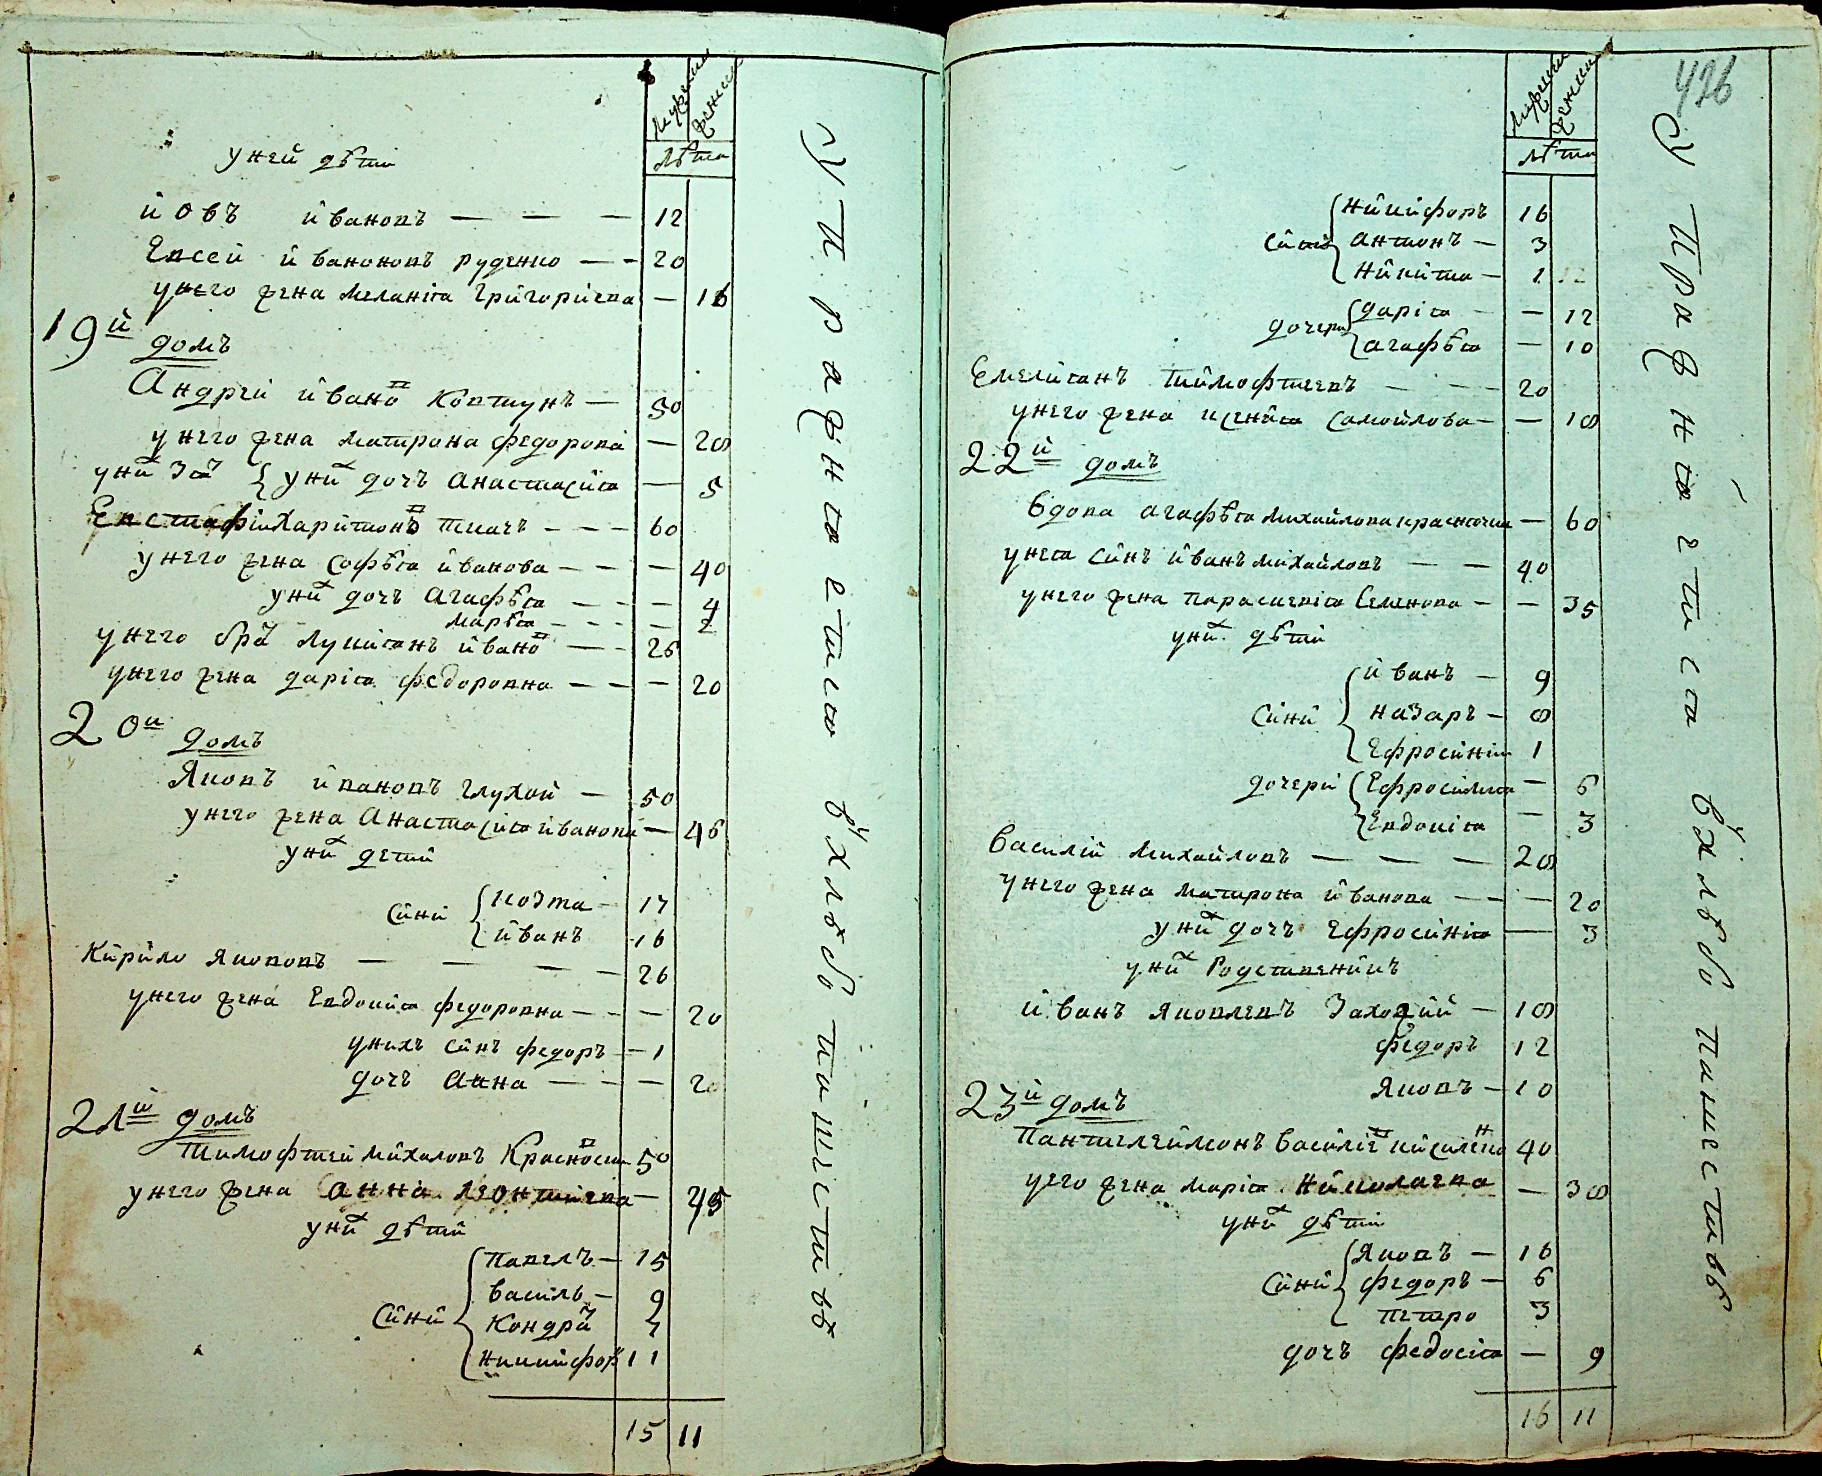 мужеска
женска
лѣта
у ней дѣти
йовъ йвановъ — — — 12
Евсей йванововъ руденко — — 20
у него жена меланія Григорйева — 18
19й домъ
Андрей йванов Ковтунъ — 50
у него жена матрона федорова — 28
уних дочъ Анастасійя — 5
Евстафій Харйтонов ткачъ - - - 60
у него жена софѣя йванова — — — 40
уних дочъ Агафѣя — - - — 4
марѣя — - - — 2
у него бра лукйянъ йванов — — 25
у него жена дарія федоровна — — — 20
20й домъ
Яковъ йвановъ глухой — 50
у него жена Анастасійя йванова — 46
уних детй
сйнй козма — 17
йванъ 16
Кйрйло якововъ — — — — 26
у него жена Евдокйя федоровна — - - — 20
у нихъ сйнъ федоръ — 1
дочъ Анна — — - — 20
21й домъ
тимофтей мйхаловъ Красноск 50
у него жена анна леонтйева — 45
уних дѣтй
сйнй павелъ — 15
васйль — 9
Кондрат 7
нйкийфор 11
15 11
У П р а ж н я е т с я в хлѣбопашествѣ
426
мужеска
женска
лѣта
сйнй нйкйфоръ 16
антонъ — 3
нйкйта — 1
дочери дарія — — 12
агафѣя — 10
Емелйянъ тймофтеевъ — — — 20
у него жена ксенйя самойлова — — 18
22й домъ
вдова агафѣя михайлова — 60
у нея сйнъ йванъ мйхайловъ — — 40
у него жена параскевія Семенова — — 35
уних дѣтй
сйнй йванъ — 9
назаръ — 8
Ефросйній 1
дочерй Ефросймія — 6
Евдокія — 3
василій михайловъ — — — 28
у него жена матрона йванова — — — 20
уних дочъ Ефросйнія — 3
уних Родственийкъ
йванъ яковлевъ — 18
федоръ 12
Яковъ — 10
23й домъ
пантелеймонъ василіев кисиленко 40
уего жена марія нйколаева — 38
уних дѣтй
сйнй Яковъ — 16
федоръ — 6
петро 3
дочъ федосія — 9
16 11
У П р а ж н я е т с я в хлѣбопашествѣ